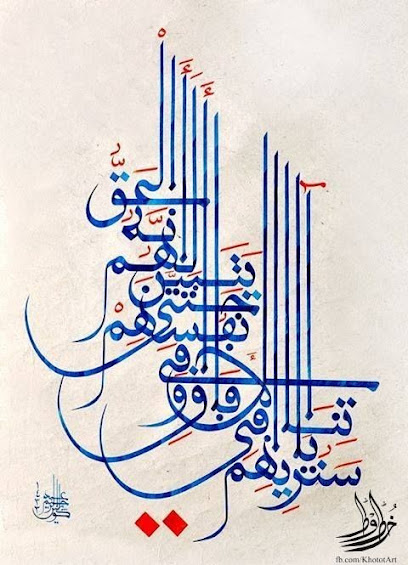 سنريهم آياتنا في الآفاق وفي أنفسهم حتى يتبين لهم أنه الحق
خطوط
fb.com/KhototArt